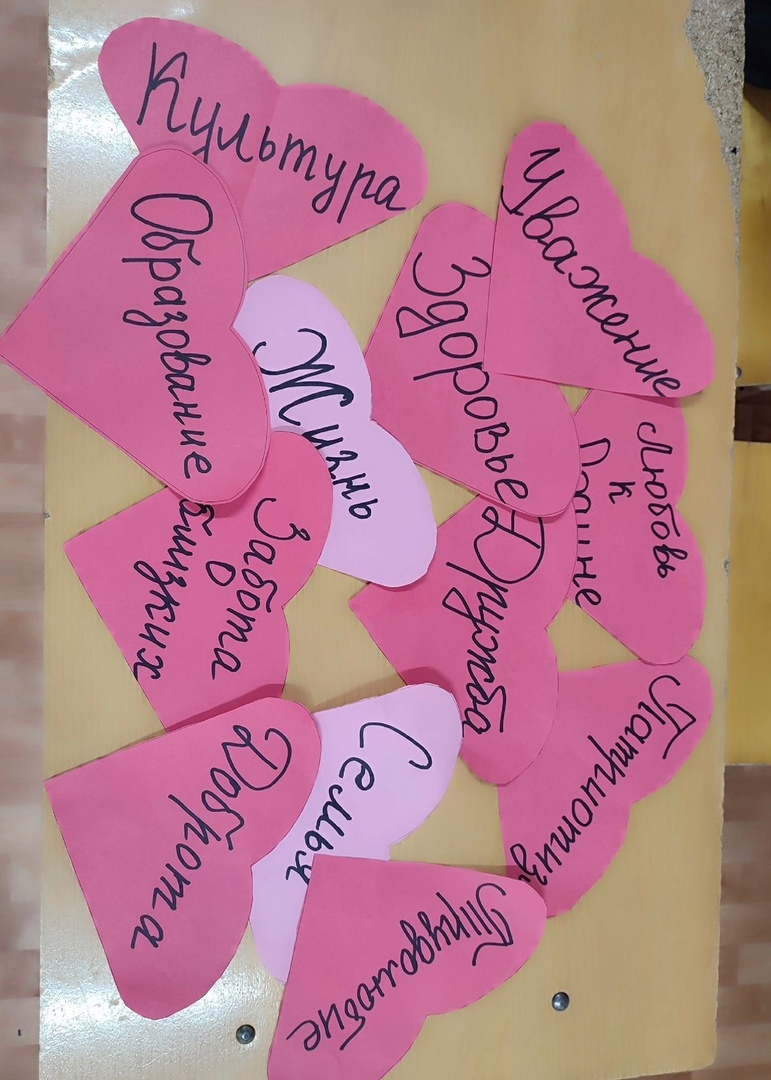 Культура
Образование
Жизнь
Здоровье
Уважение
Любовь
к
Родине
Дружба
Забота
о
близких
Патриотизм
Семья
Доброта
Трудолюбие